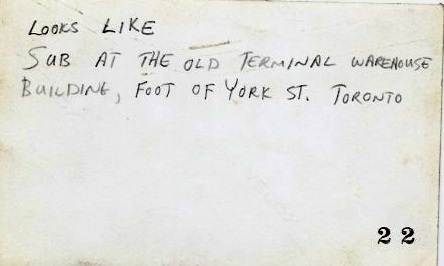 LOOKS LIKE
SUB AT THE OLD TERMINAL WAREHOUSE
BUILDING, FOOT OF YORK ST. TORONTO
22